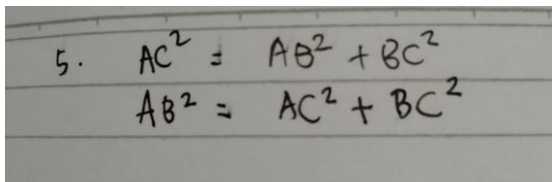 5. AC² = AB² + BC²
AB² = AC² + BC²